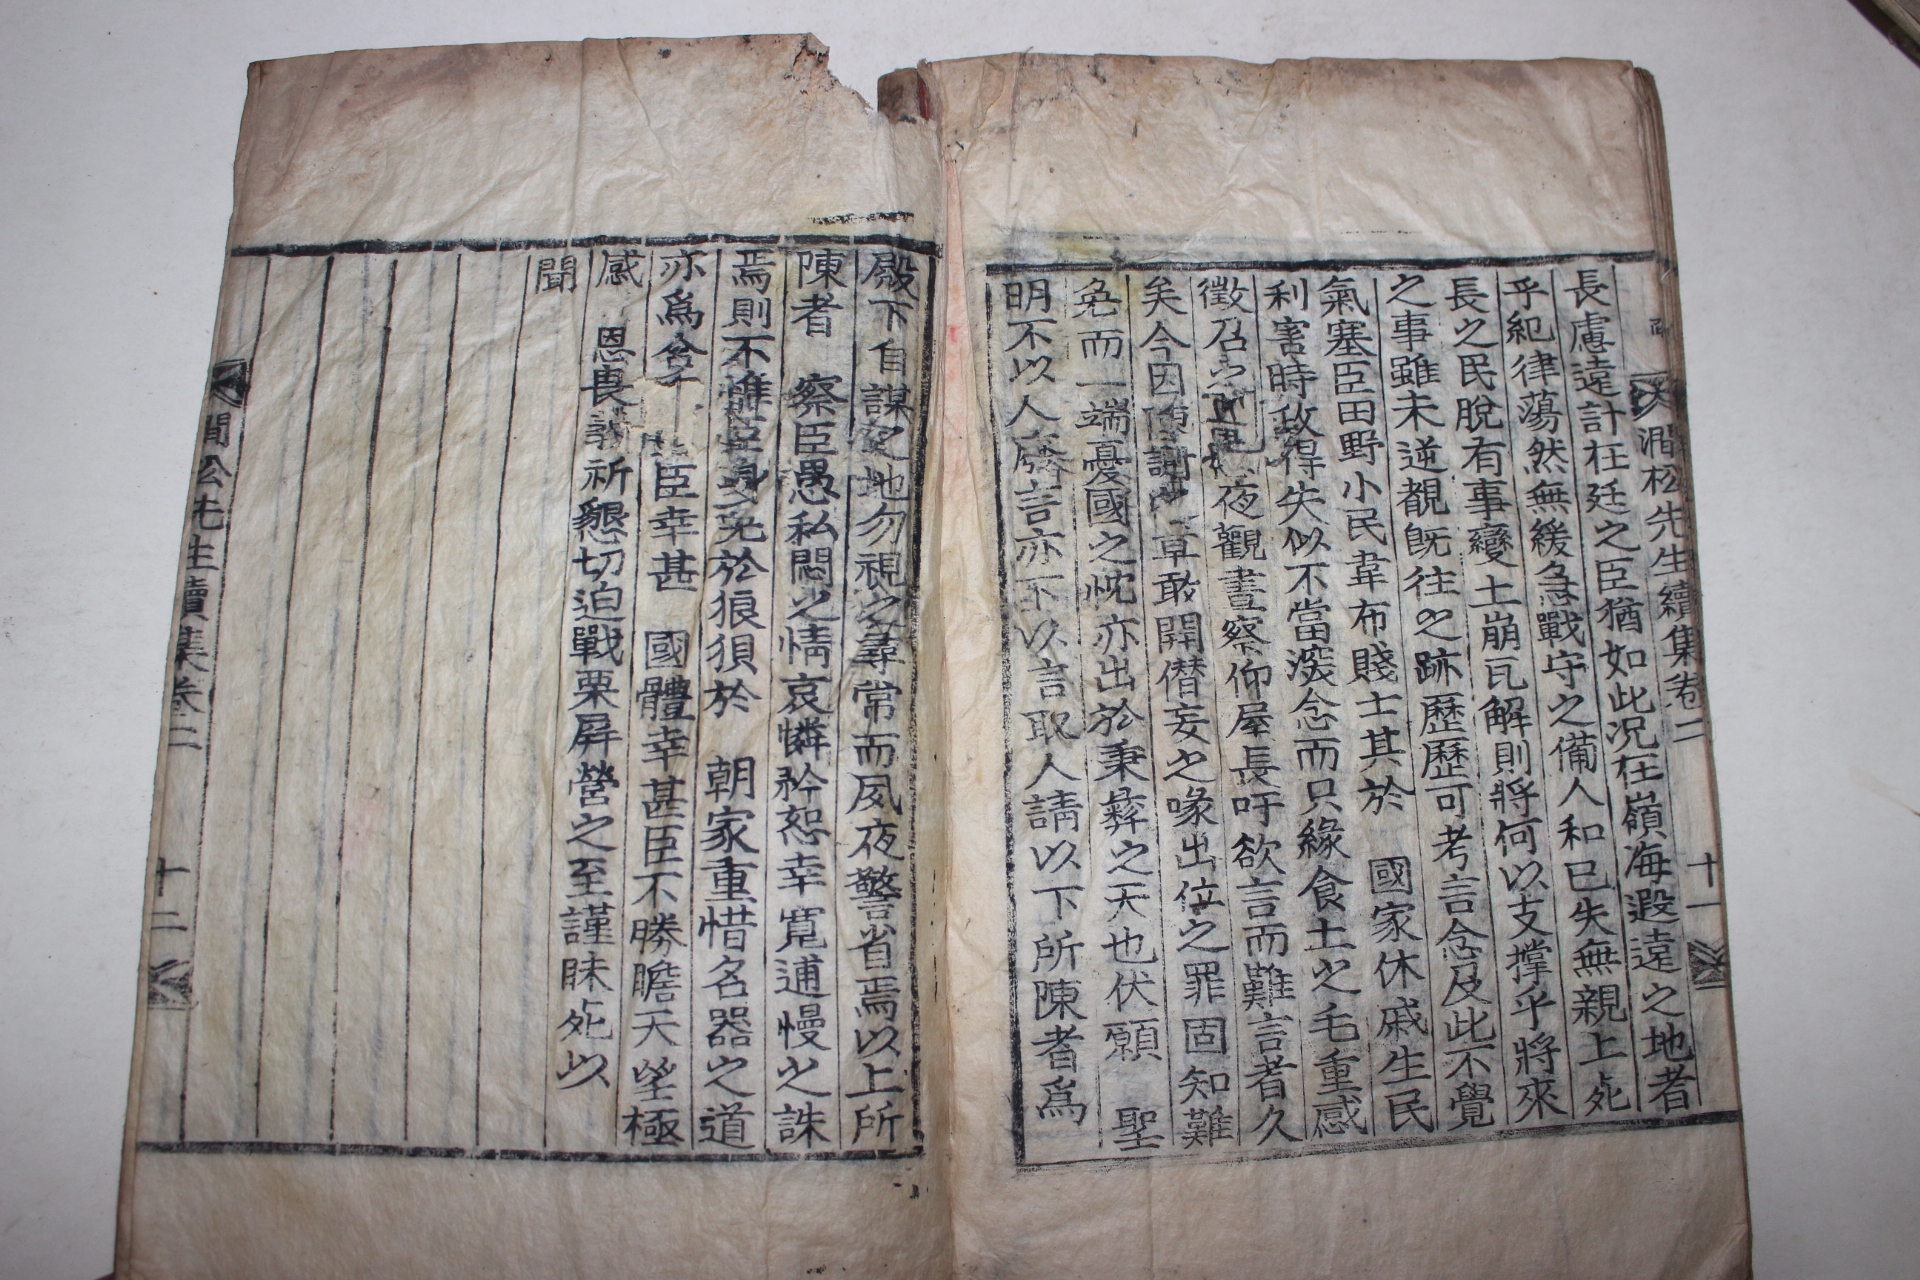 澗松先生續集卷二
十一
長慮遠計在廷之臣猶如此况在嶺海遐遠之地者
乎紀律蕩然無緩急戰守之備人和已失無親上死
長之民脫有事變土崩瓦解則將何以支撑乎將來
之事雖未逆覩旣往之跡歷歷可考言念及此不覺
氣塞臣田野小民韋布賤士其於 國家休戚生民
利害時政得失似不當深念而只緣食土之毛重感
徵召之 夜觀晝察仰屋長吁欲言而難言者久
矣今因陳謝 章敢開僭妄之喙出位之罪固知難
免而一端憂國之忱亦出於秉彛之天也伏願 聖
明不以人廢言亦不以言取人請以下所陳者爲
殿下自謀之地勿視之尋常而夙夜警省焉以上所
陳者 察臣愚私悶之情哀憐矜恕幸寬逋慢之誅
焉則不 臣身免於狼狽於 朝家重惜名器之道
亦爲 臣幸甚 國體幸甚臣不勝瞻天望極
感 恩畏 祈懇切迫戰栗屛營之至謹昧死以
聞
澗松先生續集卷二
十二